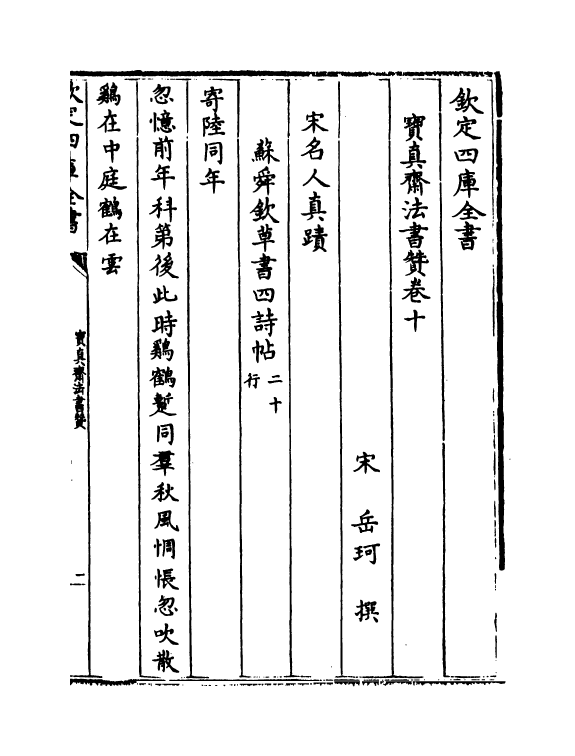 欽定四庫全書
寶真齋法書贊卷十
宋 岳珂 撰
宋名人真蹟
蘇舜欽草書四詩帖二十行
寄陸同年
忽憶前年科第後此時鷄鶴蹔同羣秋風惆悵忽吹散
鷄在中庭鶴在雲
欽定四庫全書
寶真齋法書贊
二